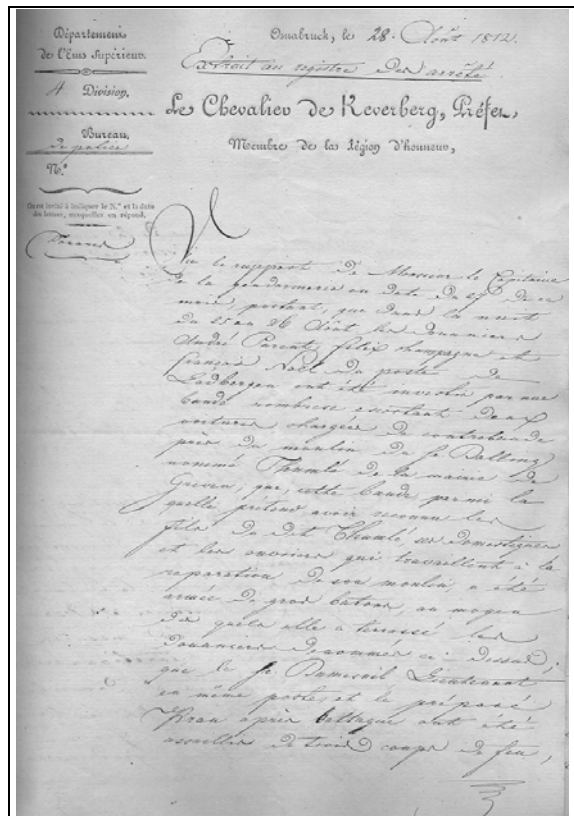 Département
de l'Ems Supérieur.
4 Division.
Bureau
de police
N.º
On est invité à indiquer le N.º et la date
des lettres, auxquelles on répond.
Douanes
Osnabruck, le 28. Août 1812.
Extrait au registre des arrêtés
Le Chevalier de Keverberg, Préfet,
Membre de la Légion d'honneur,
Vu le rapport de Monsieur le Capitaine
de la gendarmerie en date du 27 de ce
mois, portant, que dans la nuit
du 25 au 26 Août les douaniers
André Parent, felix champagne et
françois Noël du poste de
Ladbergen ont été investis par une
bande nombreuse escortant deux
voitures chargées de contrebande
près du moulin du Sr
nommé Thumlé de la mairie de
Greven, que, cette bande parmi la
quelle prétend avoir reconnu les
fils du dit Thumlé, ses domestiques
et les ouvriers qui travaillent à la
reparation de son moulin a été
armée de gros batons, au moyen
des quels elle a terrassé les
douaniers denommés ci-dessus,
que le Sr Dumesnil Lieutenant
en même poste, et le préposé
après ont été
assaillis de trois coups de feu,